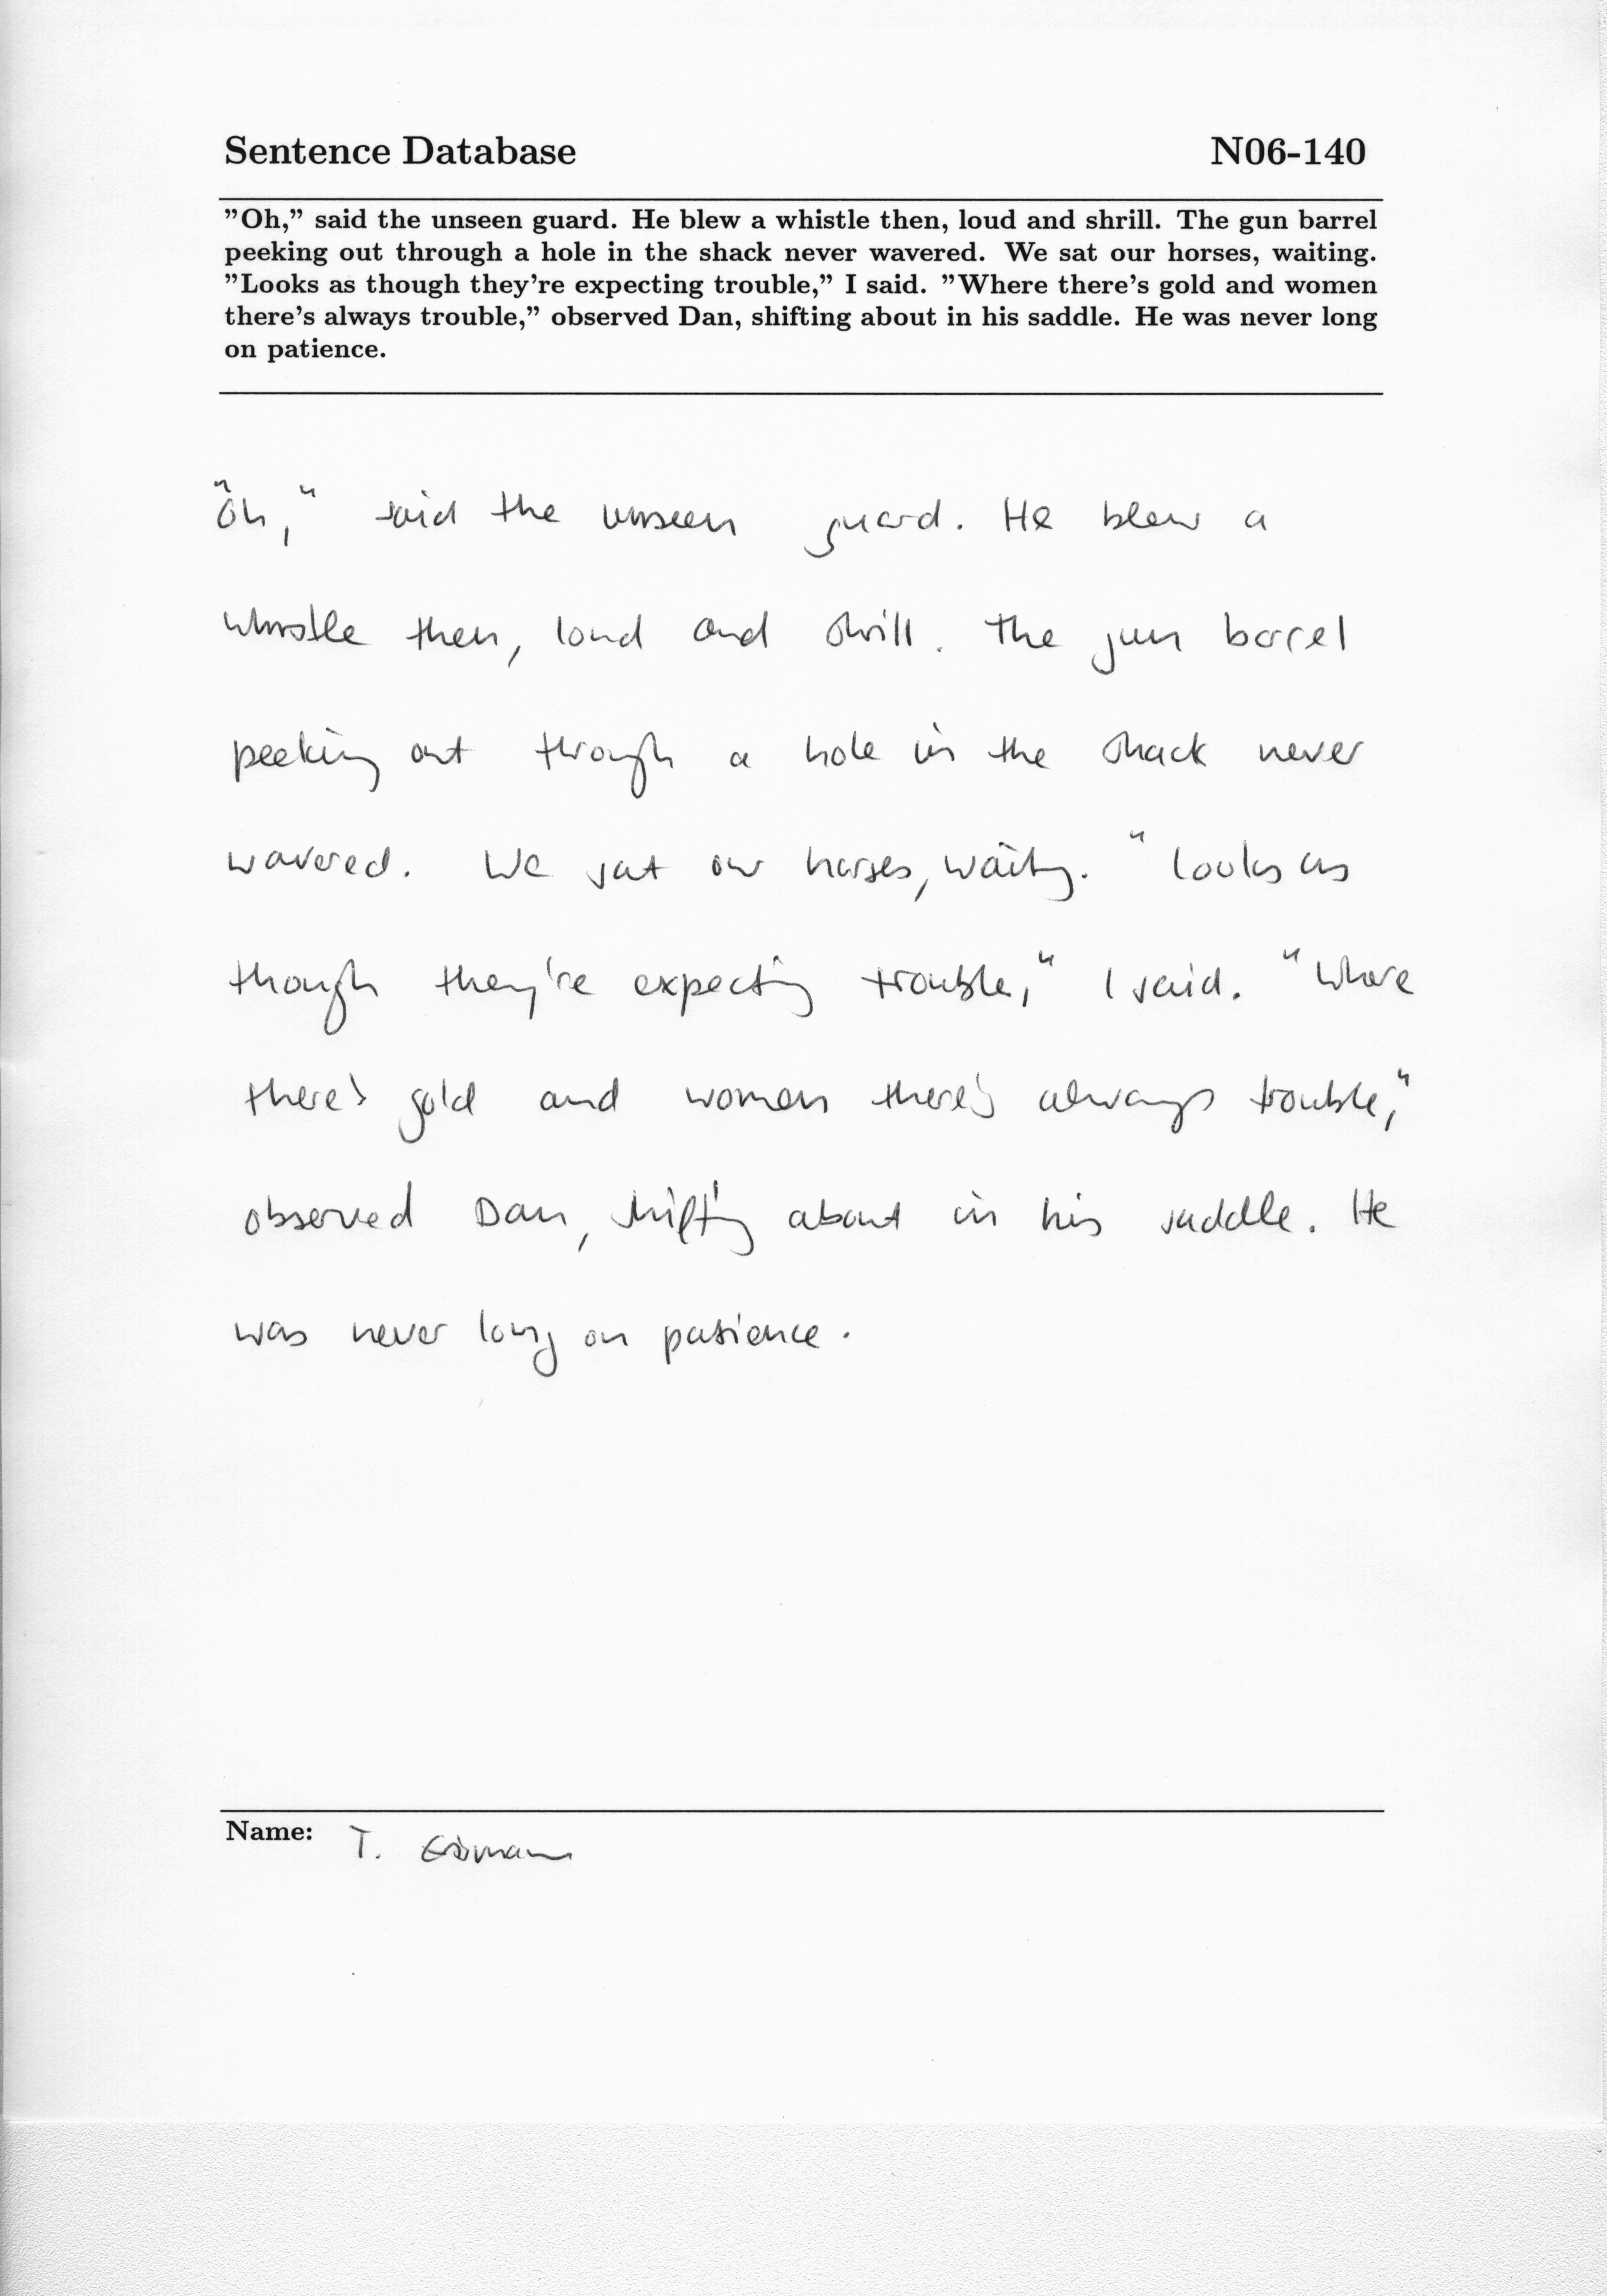 Sentence Database N06-140
"Oh," said the unseen guard. He blew a whistle then, loud and shrill. The gun barrel
peeking out through a hole in the shack never wavered. We sat our horses, waiting.
"Looks as though they're expecting trouble," I said. "Where there's gold and women
there's always trouble," observed Dan, shifting about in his saddle. He was never long
on patience.
"Oh," said the unseen guard. He blew a
whistle then, loud and shrill. The gun barrel
peeking out through a hole in the shack never
wavered. We sat our horses, waiting. "Looks as
though they're expecting trouble," I said. "Where
there's gold and women there's always trouble,"
observed Dan, shifting about in his saddle. He
was never long on patience.
Name: T.